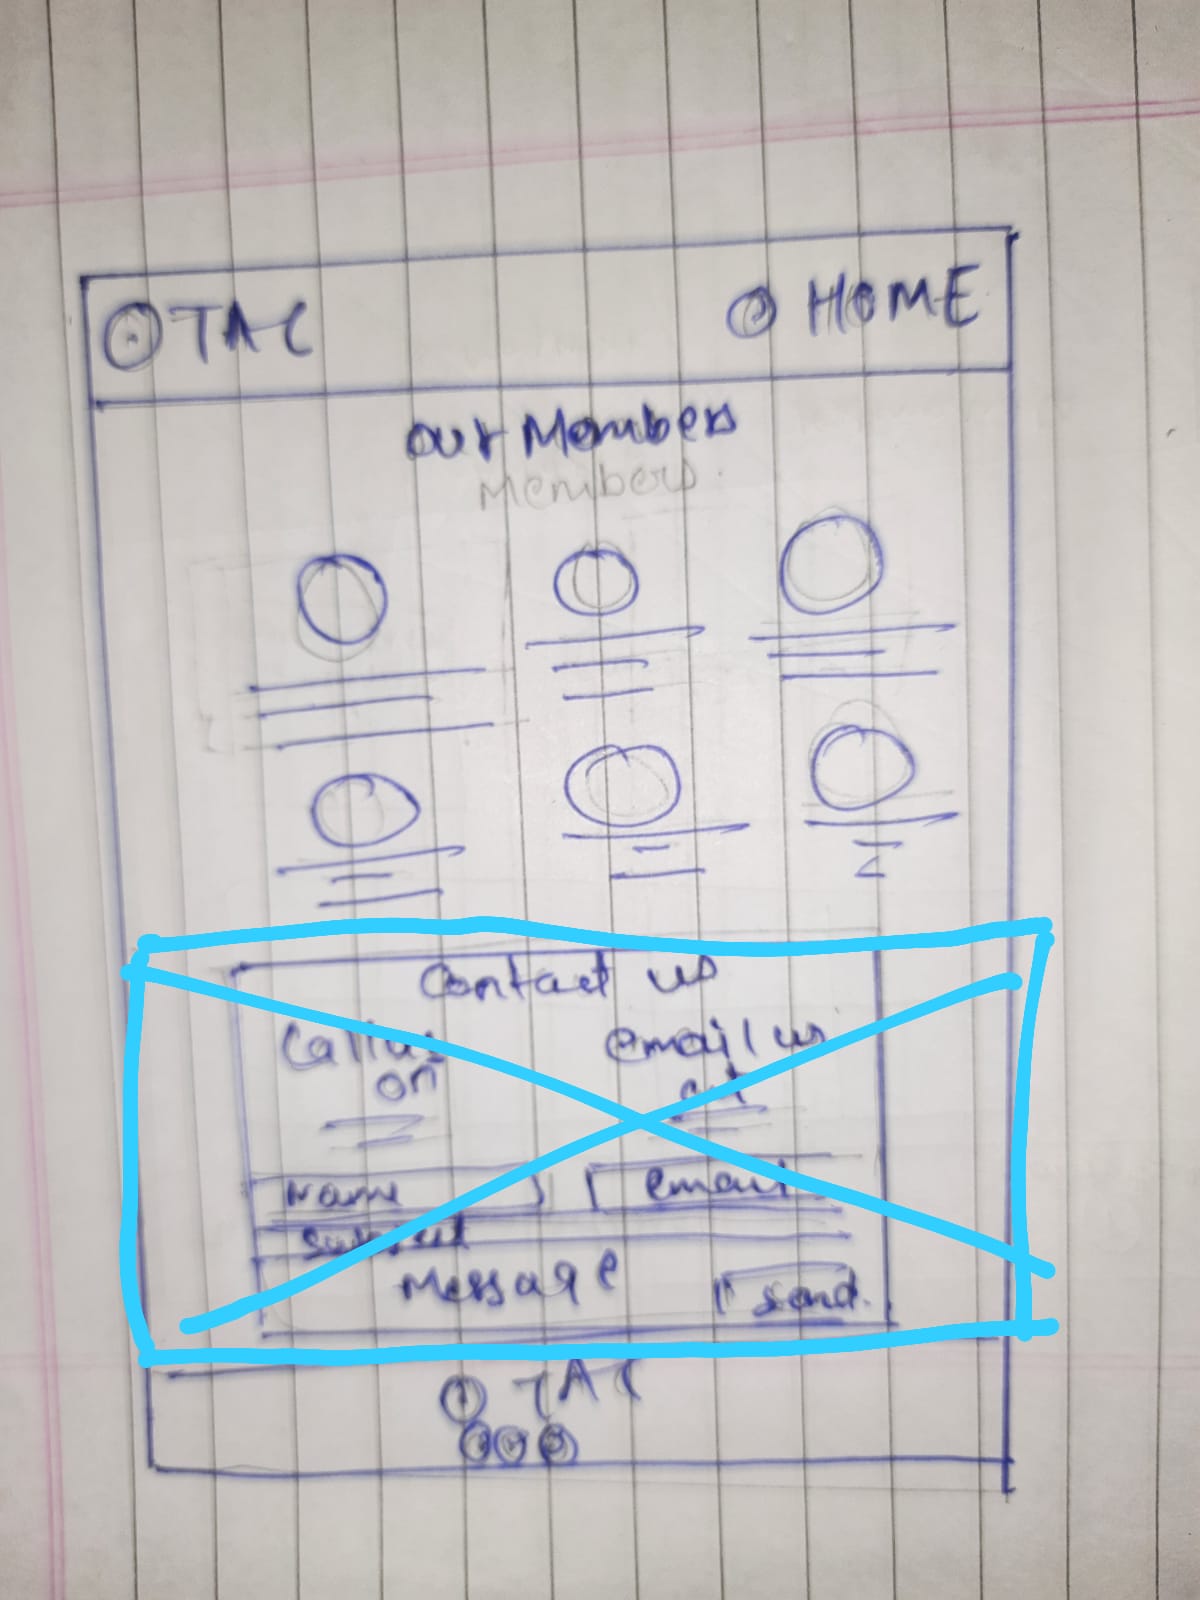 TAC HOME
our Members
Members.
Contact us
Call us email us
on at
Name email
Subject
Message send.
TAC